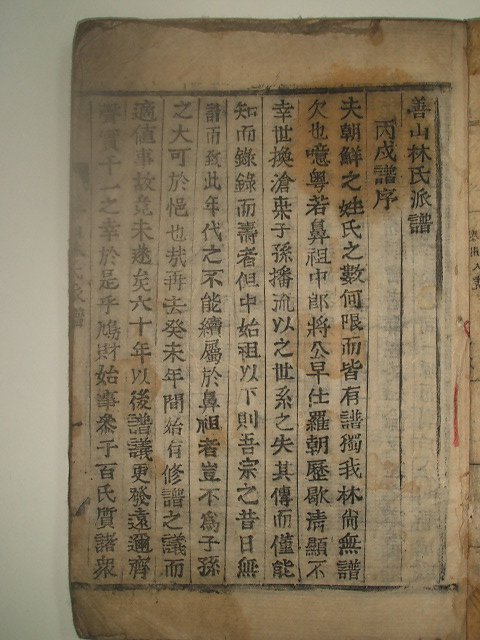 善山林氏派譜
丙戌譜序
夫朝鮮之姓氏之數何限而皆有譜獨我林尙無譜
欠也噫粤若鼻祖中郎將公早仕羅朝歷敭淸顯不
幸世換滄桒子孫播流以之世系之失其傳而僅能
知而錄錄而壽者但中始祖以下則吾宗之昔日無
譜而致此年代之不能續屬於鼻祖者豈不爲子孫
之大可於悒也哉再去癸未年間始有修譜之議而
適值事故竟未遂矣六十年以後譜議更發遠邇齊
聲實千一之幸於是乎鳩財始事叅千百氏質諸衆